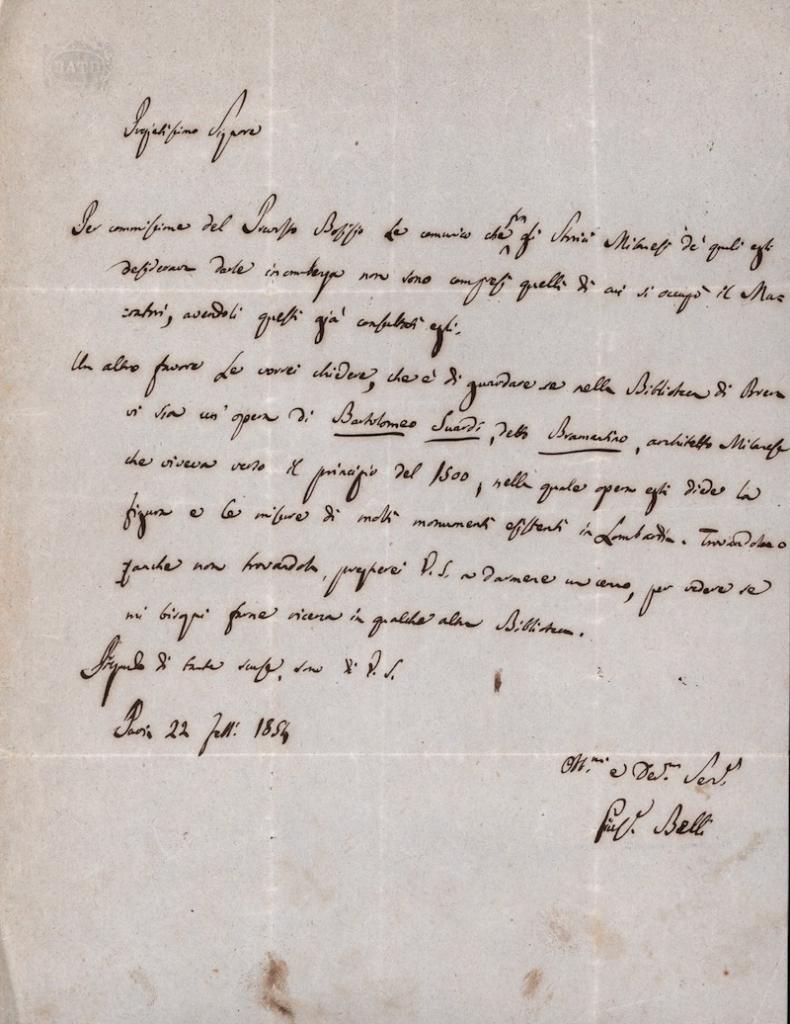 BATH
Pregiatissimo Signore
Per commissione del Bosisio Le comunico che fra gli Storici Milanesi de' quali egli
desiderava darle incombenza non sono compresi quelli di cui si occupò il Man-
zoni, avendoli questi già consultati egli.
Un altro favore Le vorrei chiedere, che è di guardare se nella Biblioteca di Brera
vi sia un' opera di Bartolomeo Suardi, detto Bramantino, architetto Milanese
che viveva verso il principio del 1500, nella quale opera egli diede la
figura e le misure di molti monumenti esistenti in Lombardia. Trovandola o
anche non trovandola, pregherei V.S. a darmene un cenno, per vedere se
mi bisogni farne ricerca in qualche altra Biblioteca.
di tante scuse, sono di V.S.
Pavia 22 Febb. 1854
Obb.mo e Dev.mo Serv.
Gius. Belli